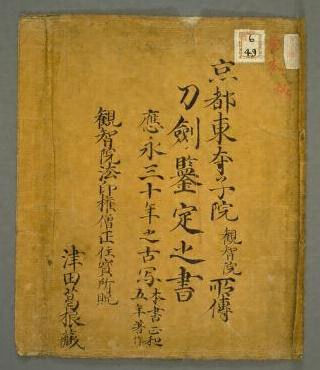 京都東寺子院観智院所傳
刀劍鑒定之書
應永三十年之古写本書正和五年著作
観智院法印権僧正住寳所眂
津田葛根蔵
6
49